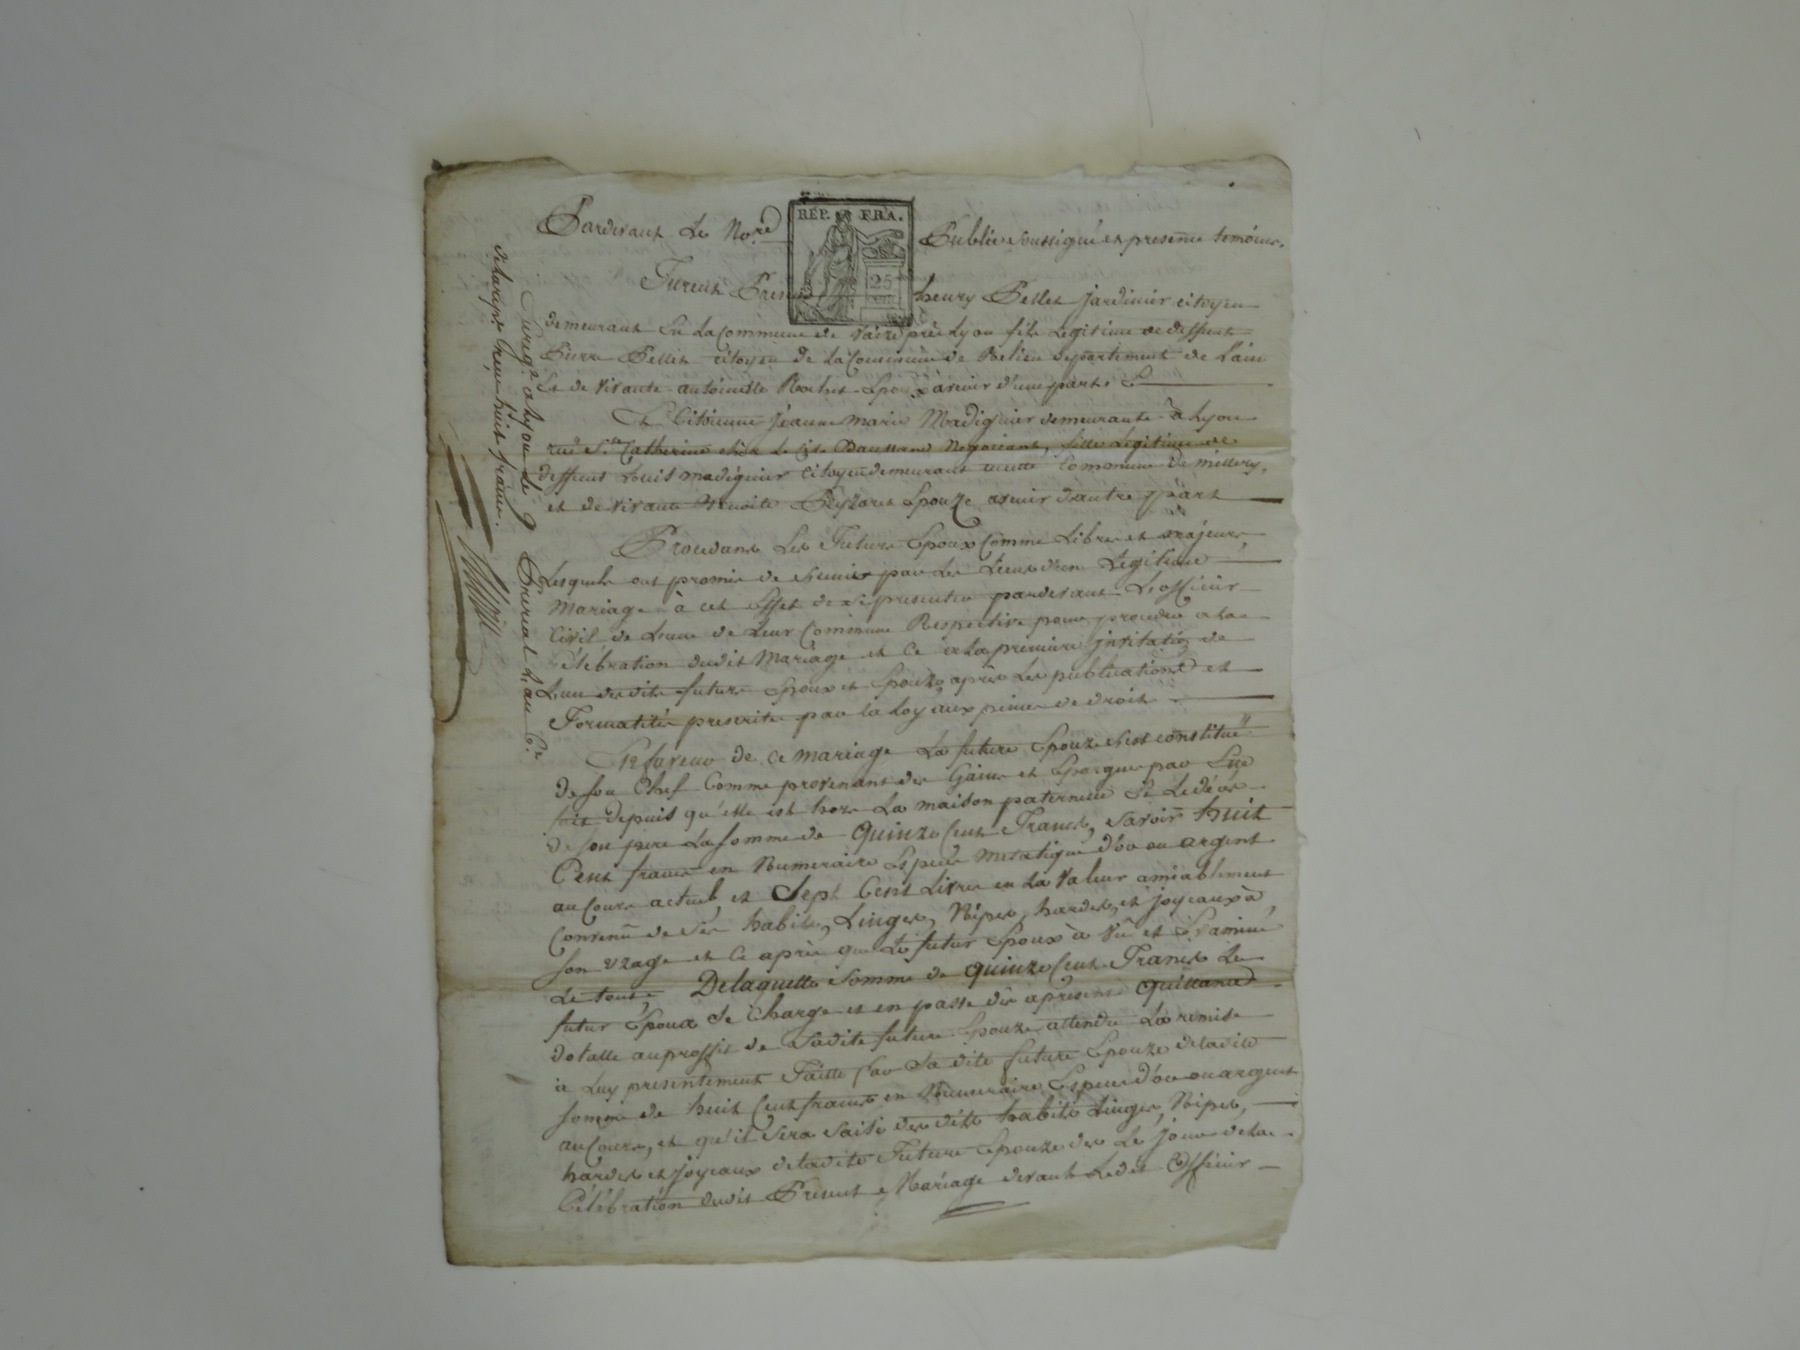 Pardevant Le No.re Public soussigné en presence temoins.
RÉP. FRA.
25
CENT.
Furent Presents henry Pellet jardinier citoyen
demeurant En La Commune de Vaize près Lyon fils Legitime de deffunt
Pierre Pellet citoyen de La Commune de Belieu departement de L'ain
Et de vivante antoinette Rochet Epoux à venir d'une part, &
Et Citoienne jeanne marie Madiguier demeurante à Lyon
rue S.te Catherine chez Le Cit. Daussane Negociant, fille Legitime de
deffunt Louis madiguier Citoyen demeurant en cette Commune de millery,
et de vivante Benoite Epouze avenir d'autre part
Procedants Les Futurs Epoux Comme Libres et majeurs,
Lesquels ont promis de s'unir par Les Liens d'un Legitime
Mariage à cet Effet de se presenter pardevant L'officier
Civil de L'une de Leur Commune Respective pour proceder a La
Célébration dudit Mariage et Ce à La premiere invitation de
L'un desdits futurs Epoux et Epouze après Les publications et
Formalités prescrites par la Loy aux peines de droit
En faveur de ce mariage La future Epouze s'est constitué
de son Chef Comme provenant des Gains et Epargnes par Elle
fait depuis qu'elle est hors La maison paternelle Et Le décès
de son pere La somme de Quinze Cent Francs, savoir huit
Cent francs en Numeraire Espece metalique d'or ou argent
au Cours actuel, et Sept Cent Livres en La Valeur amiablement
Convenu de ses habits, Linges, Nipes, hardes, et joyeaux à
son uzage et Ce après que Le futur Epoux à Vu et Examiné
Le tout, De laquelle somme de quinze Cent Francs Le
futur Epoux Se Charge et en passe dès apresent quittance
dotalle au proffit de Sadite future Epouze attendu La remise
à Luy presentement Faitte par Sa dite future Epouze deladite
somme de huit Cent francs en Numeraire Espece d'or ou argent
au Cours, et qu'il Sera Saisi des dits habits Linges, Nipes,
hardes et joyeaux de ladite Future Epouze dès Le jour de La
Célébration dudit Present Mariage devant Ledit Officier
Enreg.é a Lyon Le 9 Prereal L'an 6.e
dix huit francs.